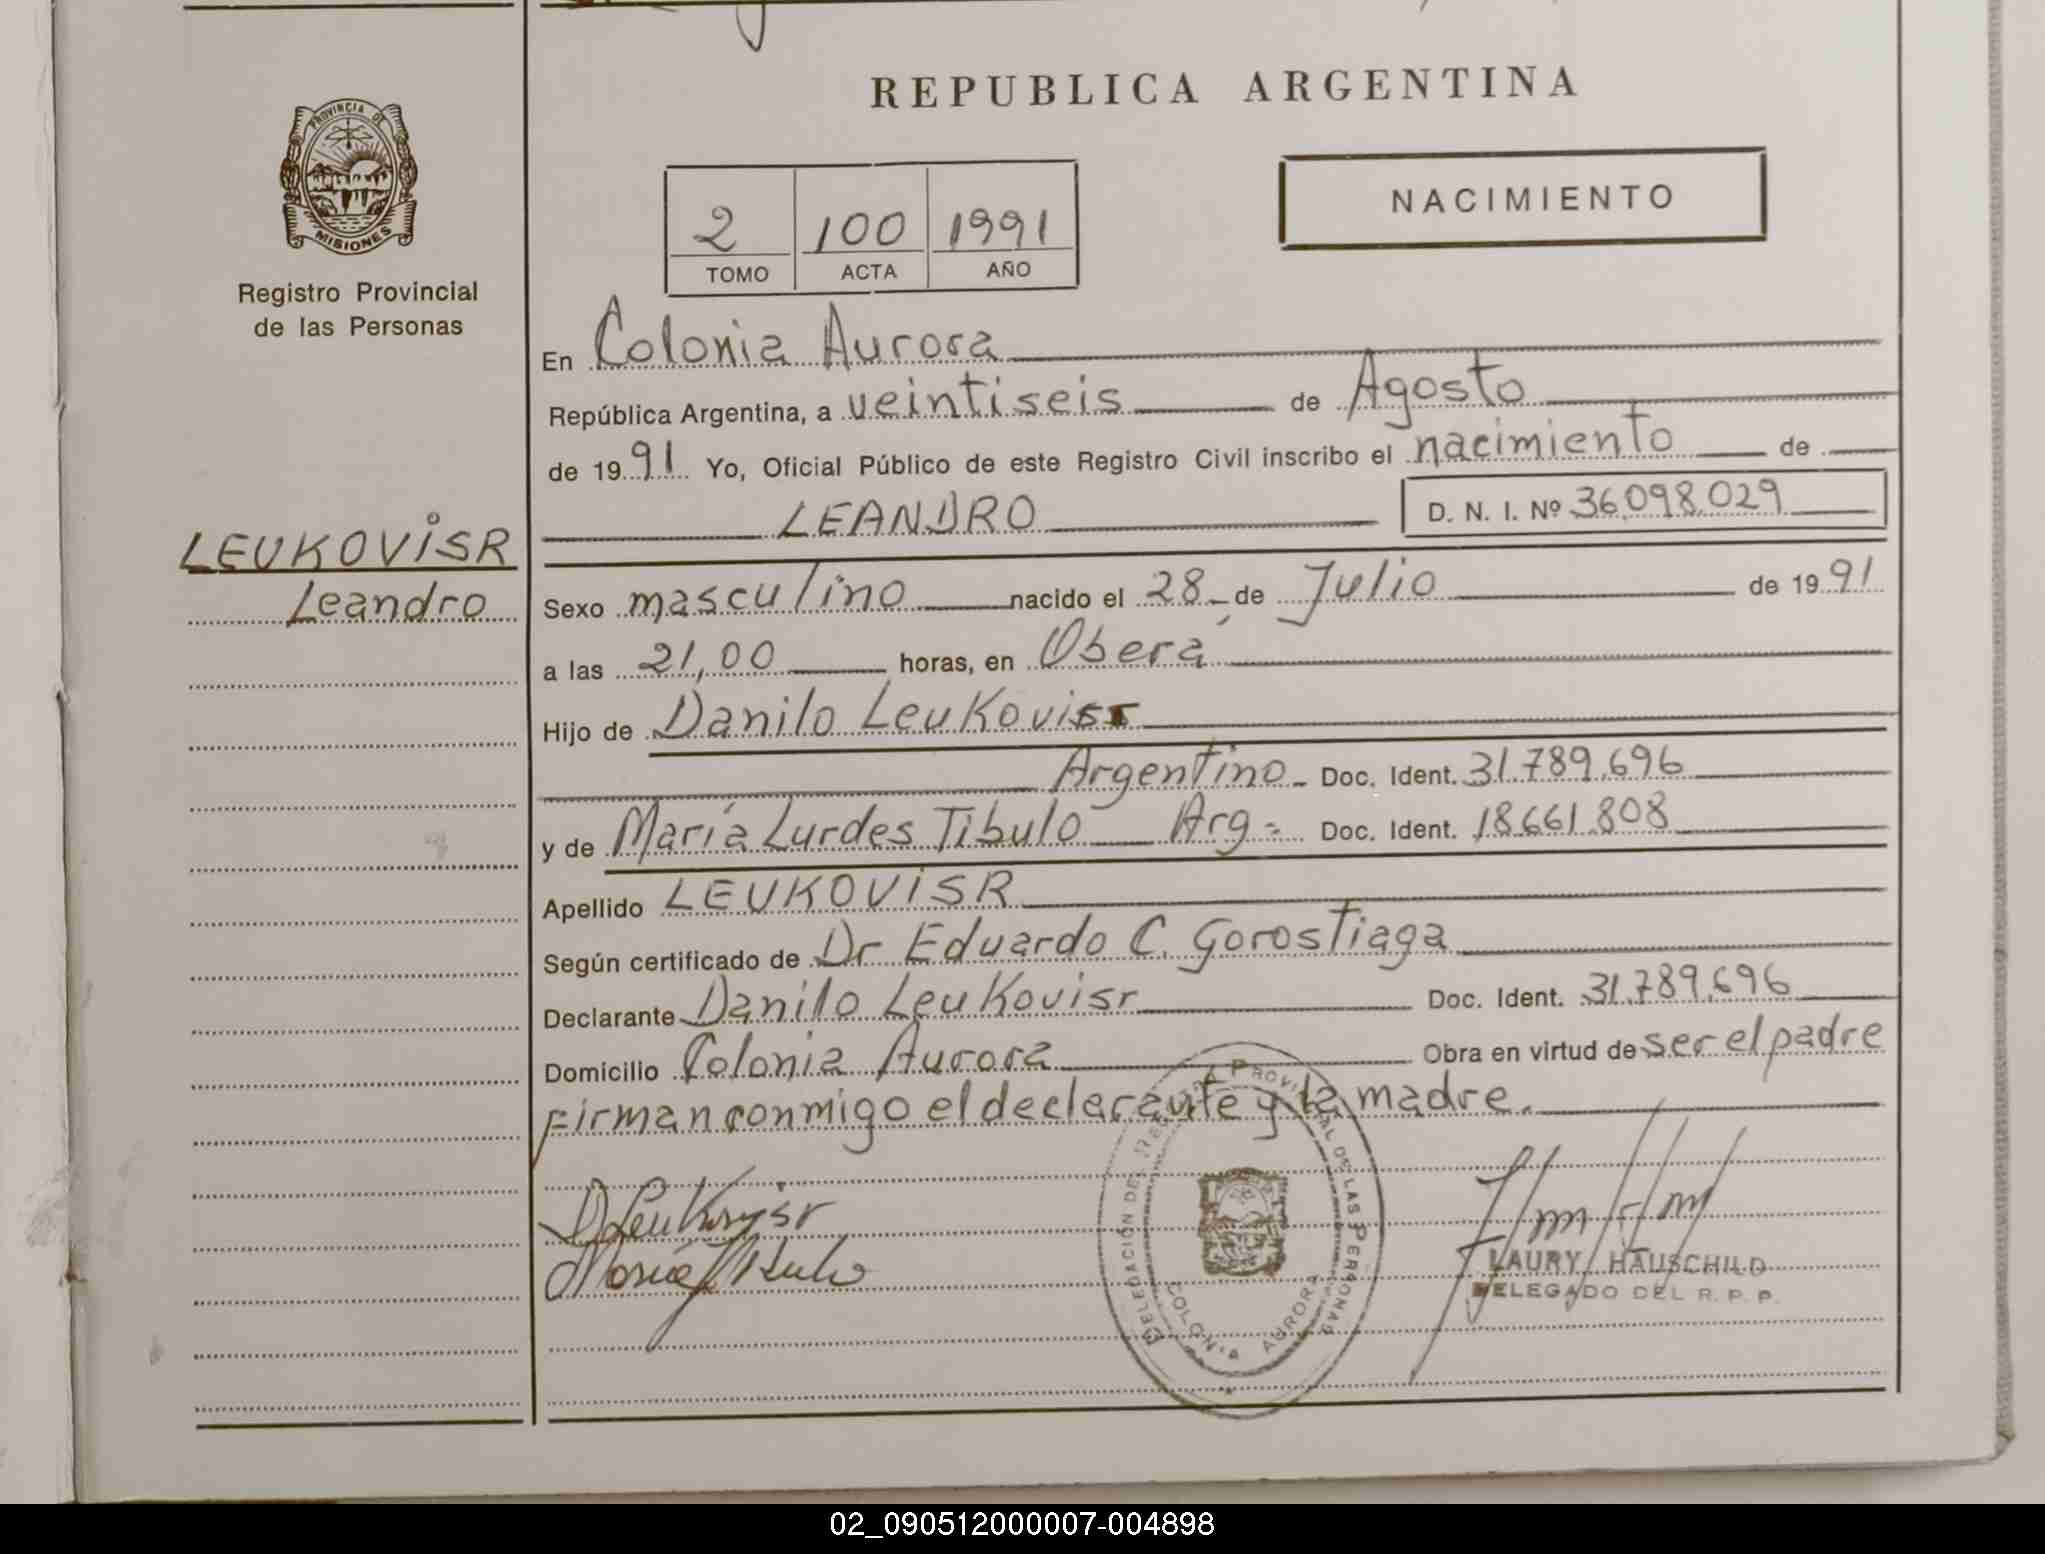 REPUBLICA ARGENTINA
PROVINCIA DE
MISIONES
Registro Provincial
de las Personas
NACIMIENTO
2 100 1991
TOMO ACTA AÑO
En Colonia Aurora
República Argentina, a veintiseis de Agosto
de 1991 Yo, Oficial Público de este Registro Civil inscribo el nacimiento de
LEANDRO D. N. I. Nº 36,098,029
LEUKOVISR
Leandro
Sexo masculino nacido el 28 de Julio de 1991
a las 21,00 horas, en Oberá
Hijo de Danilo Leukovisr
Argentino Doc. Ident. 31.789,696
y de María Lurdes Tibulo Arg- Doc. Ident. 18.661.808
Apellido LEUKOVISR
Según certificado de Dr Eduardo C. Gorostiaga
Declarante Danilo Leukovisr Doc. Ident. 31.789,696
Domicilio Colonia Aurora Obra en virtud de ser el padre
Firman conmigo el declarante y la madre.
DELEGACIÓN DEL REGISTRO PROVINCIAL DE LAS PERSONAS
COLONIA AURORA
D Leukovisr
LAURY HAUSCHILD
DELEGADO DEL R. P. P.
02_090512000007-004898